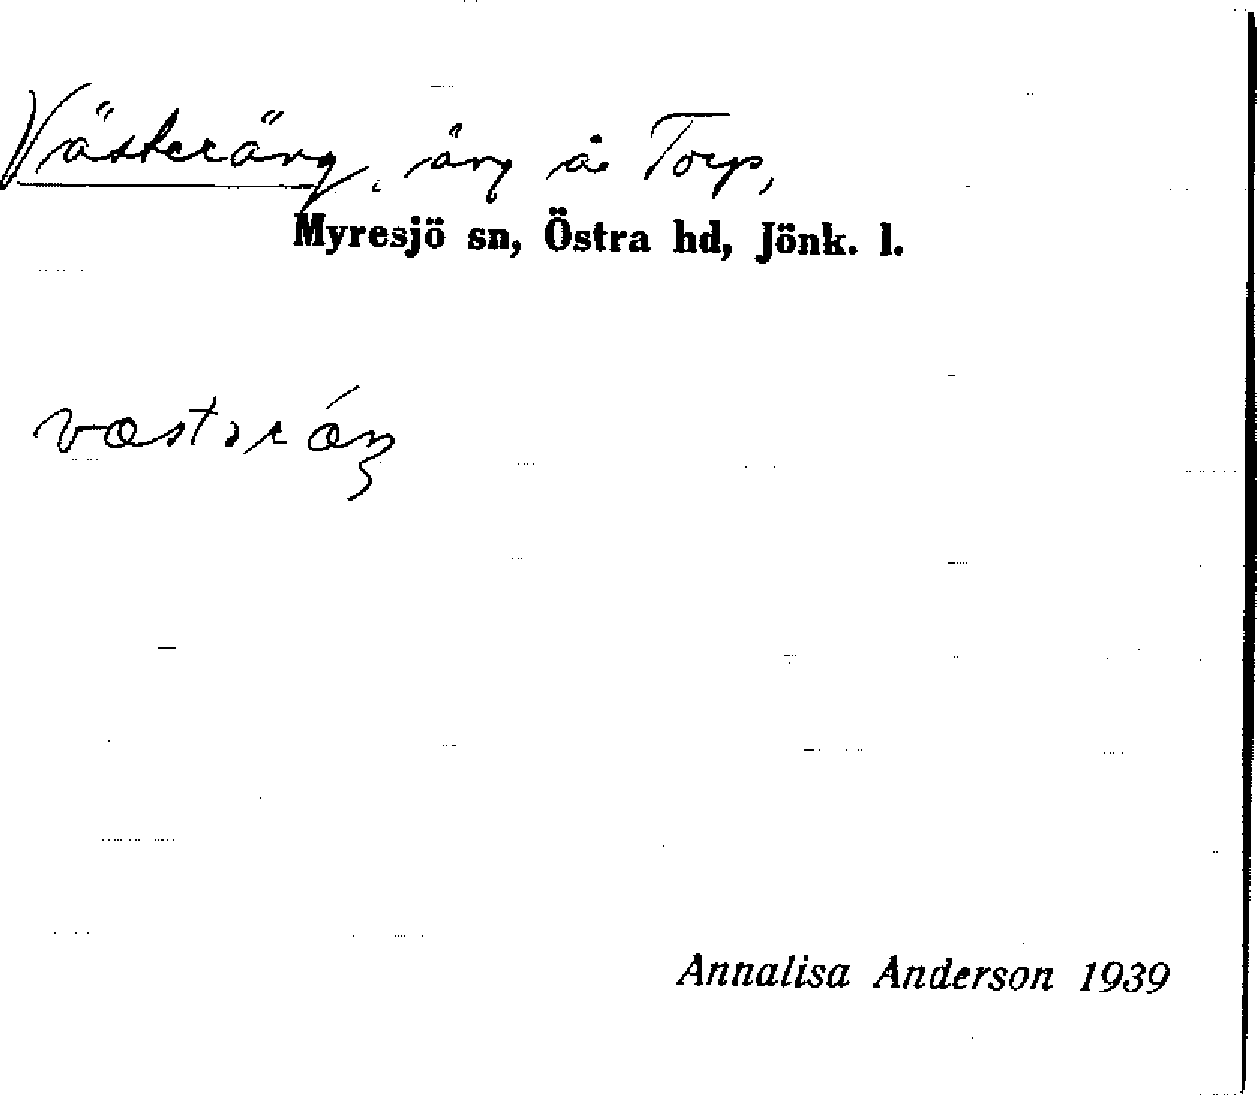 Västeräng, äng å Torp,
Myresjö sn, Östra hd, Jönk. l.
væstərǽŋ
Annalisa Anderson 1939